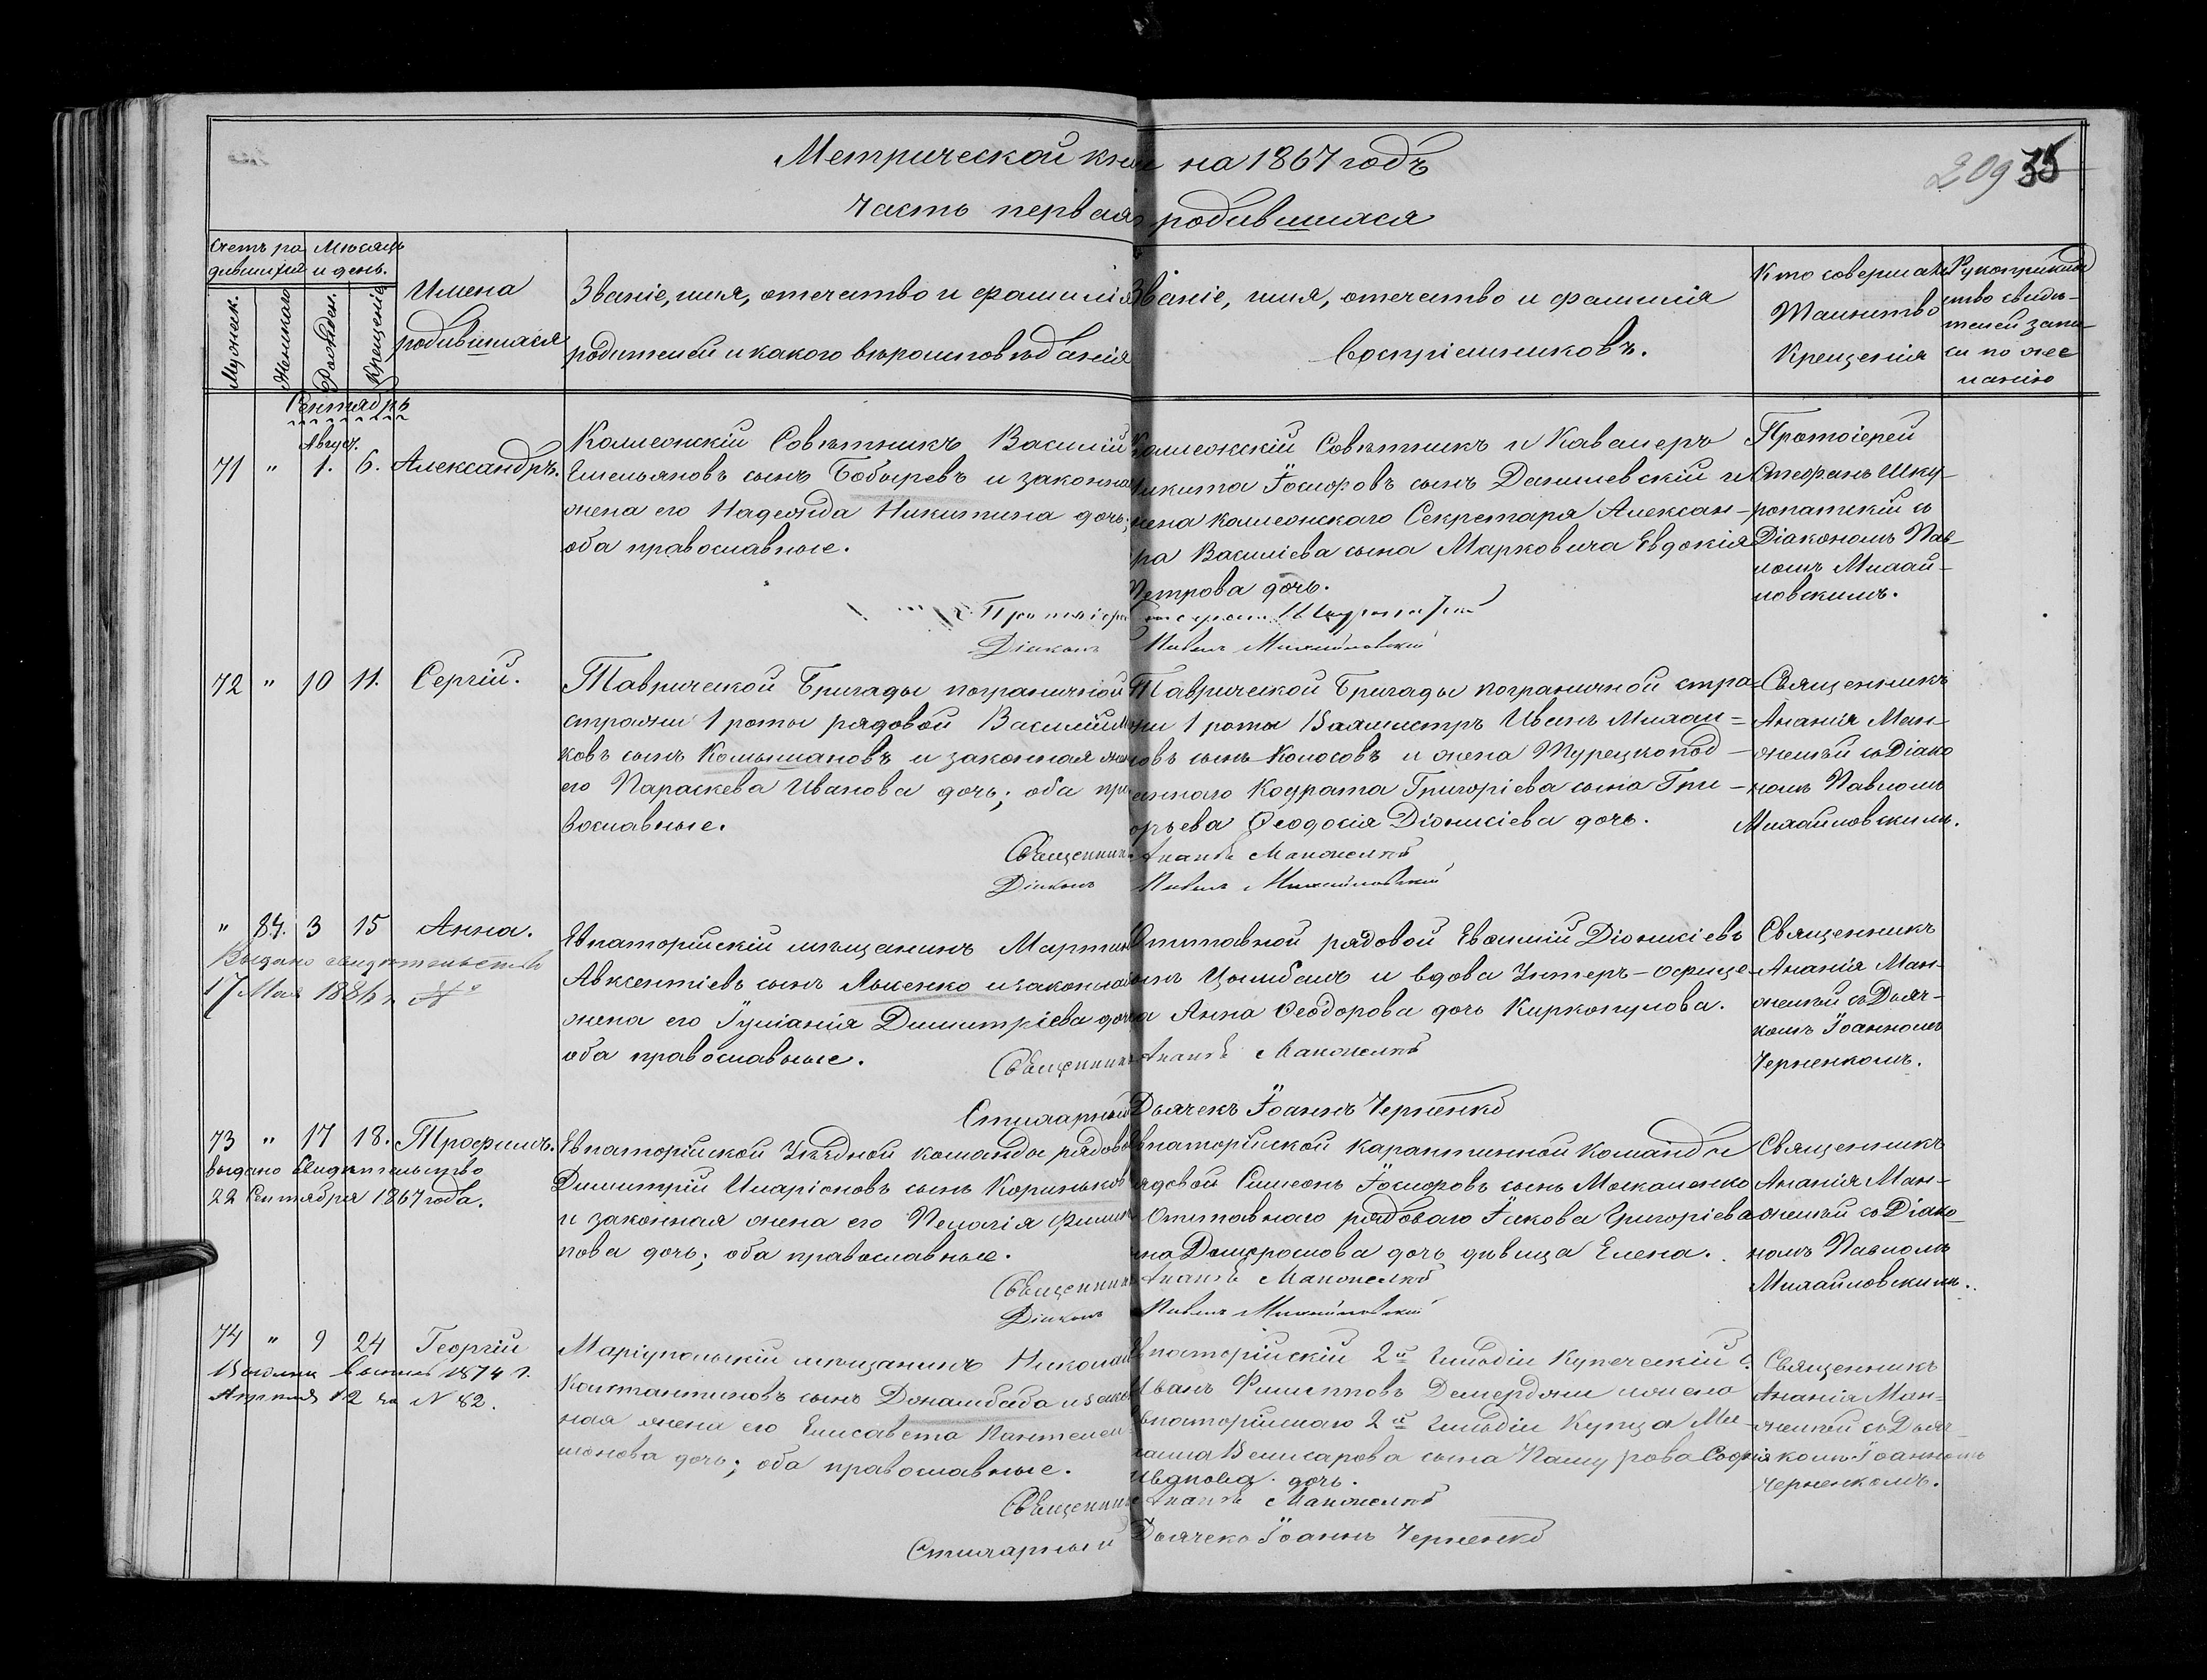 Метрической кни на 1867 годъ
209 35
Часть первая родившихся
Счетъ ро
дившихся
Мѣсяцъ
и день.
Мужеск.
Женского
Рожден.
Крещенія
Имена
родившихся
Званіе, имя, отечество и фамилія
родителей и какого вѣроисповѣданія
Званіе, имя, отечество и фамилія
Воспріемниковъ.
Кто совершалъ
Таинство
Крещенія
Рукоприклад
ство свидѣ-
телей запи-
си по же
ланію
Сентябрь
Авгус.
71 " 1. 6. Александръ.
Коллежскій Совѣтникъ Василій
Емельяновъ сынъ Бобыревъ и законна
жена его Надежда Никитина дочь;
оба православные.
Коллежскій Совѣтникъ и Кавалеръ
Никита Іосифовъ сынъ Данилевскій и
жена коллежского Секретаря Алексан-
ра Василіева сына Марковича Евдокія
Петрова дочь.
Протоіерей
Стефанъ Шку-
ропатскій съ
Діакономъ Пав-
ломъ Михай-
ловскимъ.
Протоіере
Діаконъ Павелъ Михайловскій
72 " 10 11. Сергій.
Таврической Бригады пограничной
стражи 1 роты рядовой Василій
ковъ сынъ Колышановъ и законная жен
его Параскева Иванова дочь; оба пра
вославные.
Таврической Бригады пограничной стра-
жи 1 роты Вахмистръ Иванъ Михаи=
ловъ сынъ Колосовъ и жена Турецкопод-
еннаго Кодрата Григоріева сына Гри-
орьева Ѳеодосія Діонисіева дочь.
Священникъ
Ананія Ман-
желѣй съ Діако
номъ Павломъ
Михайловскимъ.
Священник Ананія Манжелѣй
Діаконъ Павелъ Михайловскій
" 84. 3 15 Анна.
Выдано свидѣтельство
17 Мая 1886 г. №
Евпаторійскій мѣщанинъ Мартин
Авксентіевъ сынъ Ляшенко и законная
жена его Іуліанія Димитріева доч
оба православные.
Отставной рядовой Евѳимій Діонисіевъ
ынъ Цымбалъ и вдова Унтеръ-офице-
а Анна Ѳеодорова дочь Киркопулова.
Священникъ
Ананія Ман-
желѣй съ Дьяч-
комъ Іоанномъ
Черненкомъ.
Священникъ Ананія Манжелѣй
Стихарный Дьячекъ Іоаннъ Черненко
73 " 17 18. Трофимъ.
Выдано Свидѣтельство
22 Сентября 1867 года.
Евпаторійской Уѣздной команды рядово
Димитрій Иларіоновъ сынъ Кориньков
и законная жена его Пелагія Филип
пова дочь; оба православные.
Евпаторійской Карантинной Команды
рядовой Симеонъ Іосифовъ сынъ Москаленко
Отставнаго рядоваго Іакова Григоріева
на дочь дѣвица Елена.
Священникъ
Ананія Ман-
желѣй съ Діако-
номъ Павломъ
Михайловскимъ.
Священникъ Ананія Манжелѣй
Діаконъ Павелъ Михайловскій
74 " 9 24 Георгій
1874 г.
Апрѣля 12 за N 82.
Маріупольскій мѣщанинъ Николай
Константиновъ сынъ Донамбаба и зако
ная жена его Елисавета Пантелеи
монова дочь; оба православные.
Евпаторійскій 2й Гильдіи Купеческій с.
Иванъ Филипповъ Демерджи и жена
Евпаторійскаго 2й Гильдіи Купца Ми-
хаила Велисарова сына Пашурова Софія
Иванова дочь.
Священникъ
Ананія Ман-
желѣй съ Дьяч-
комъ Іоанномъ
Черненкомъ.
Священник Ананія Манжелѣй
Стихарный Дьячекъ Іоаннъ Черненко